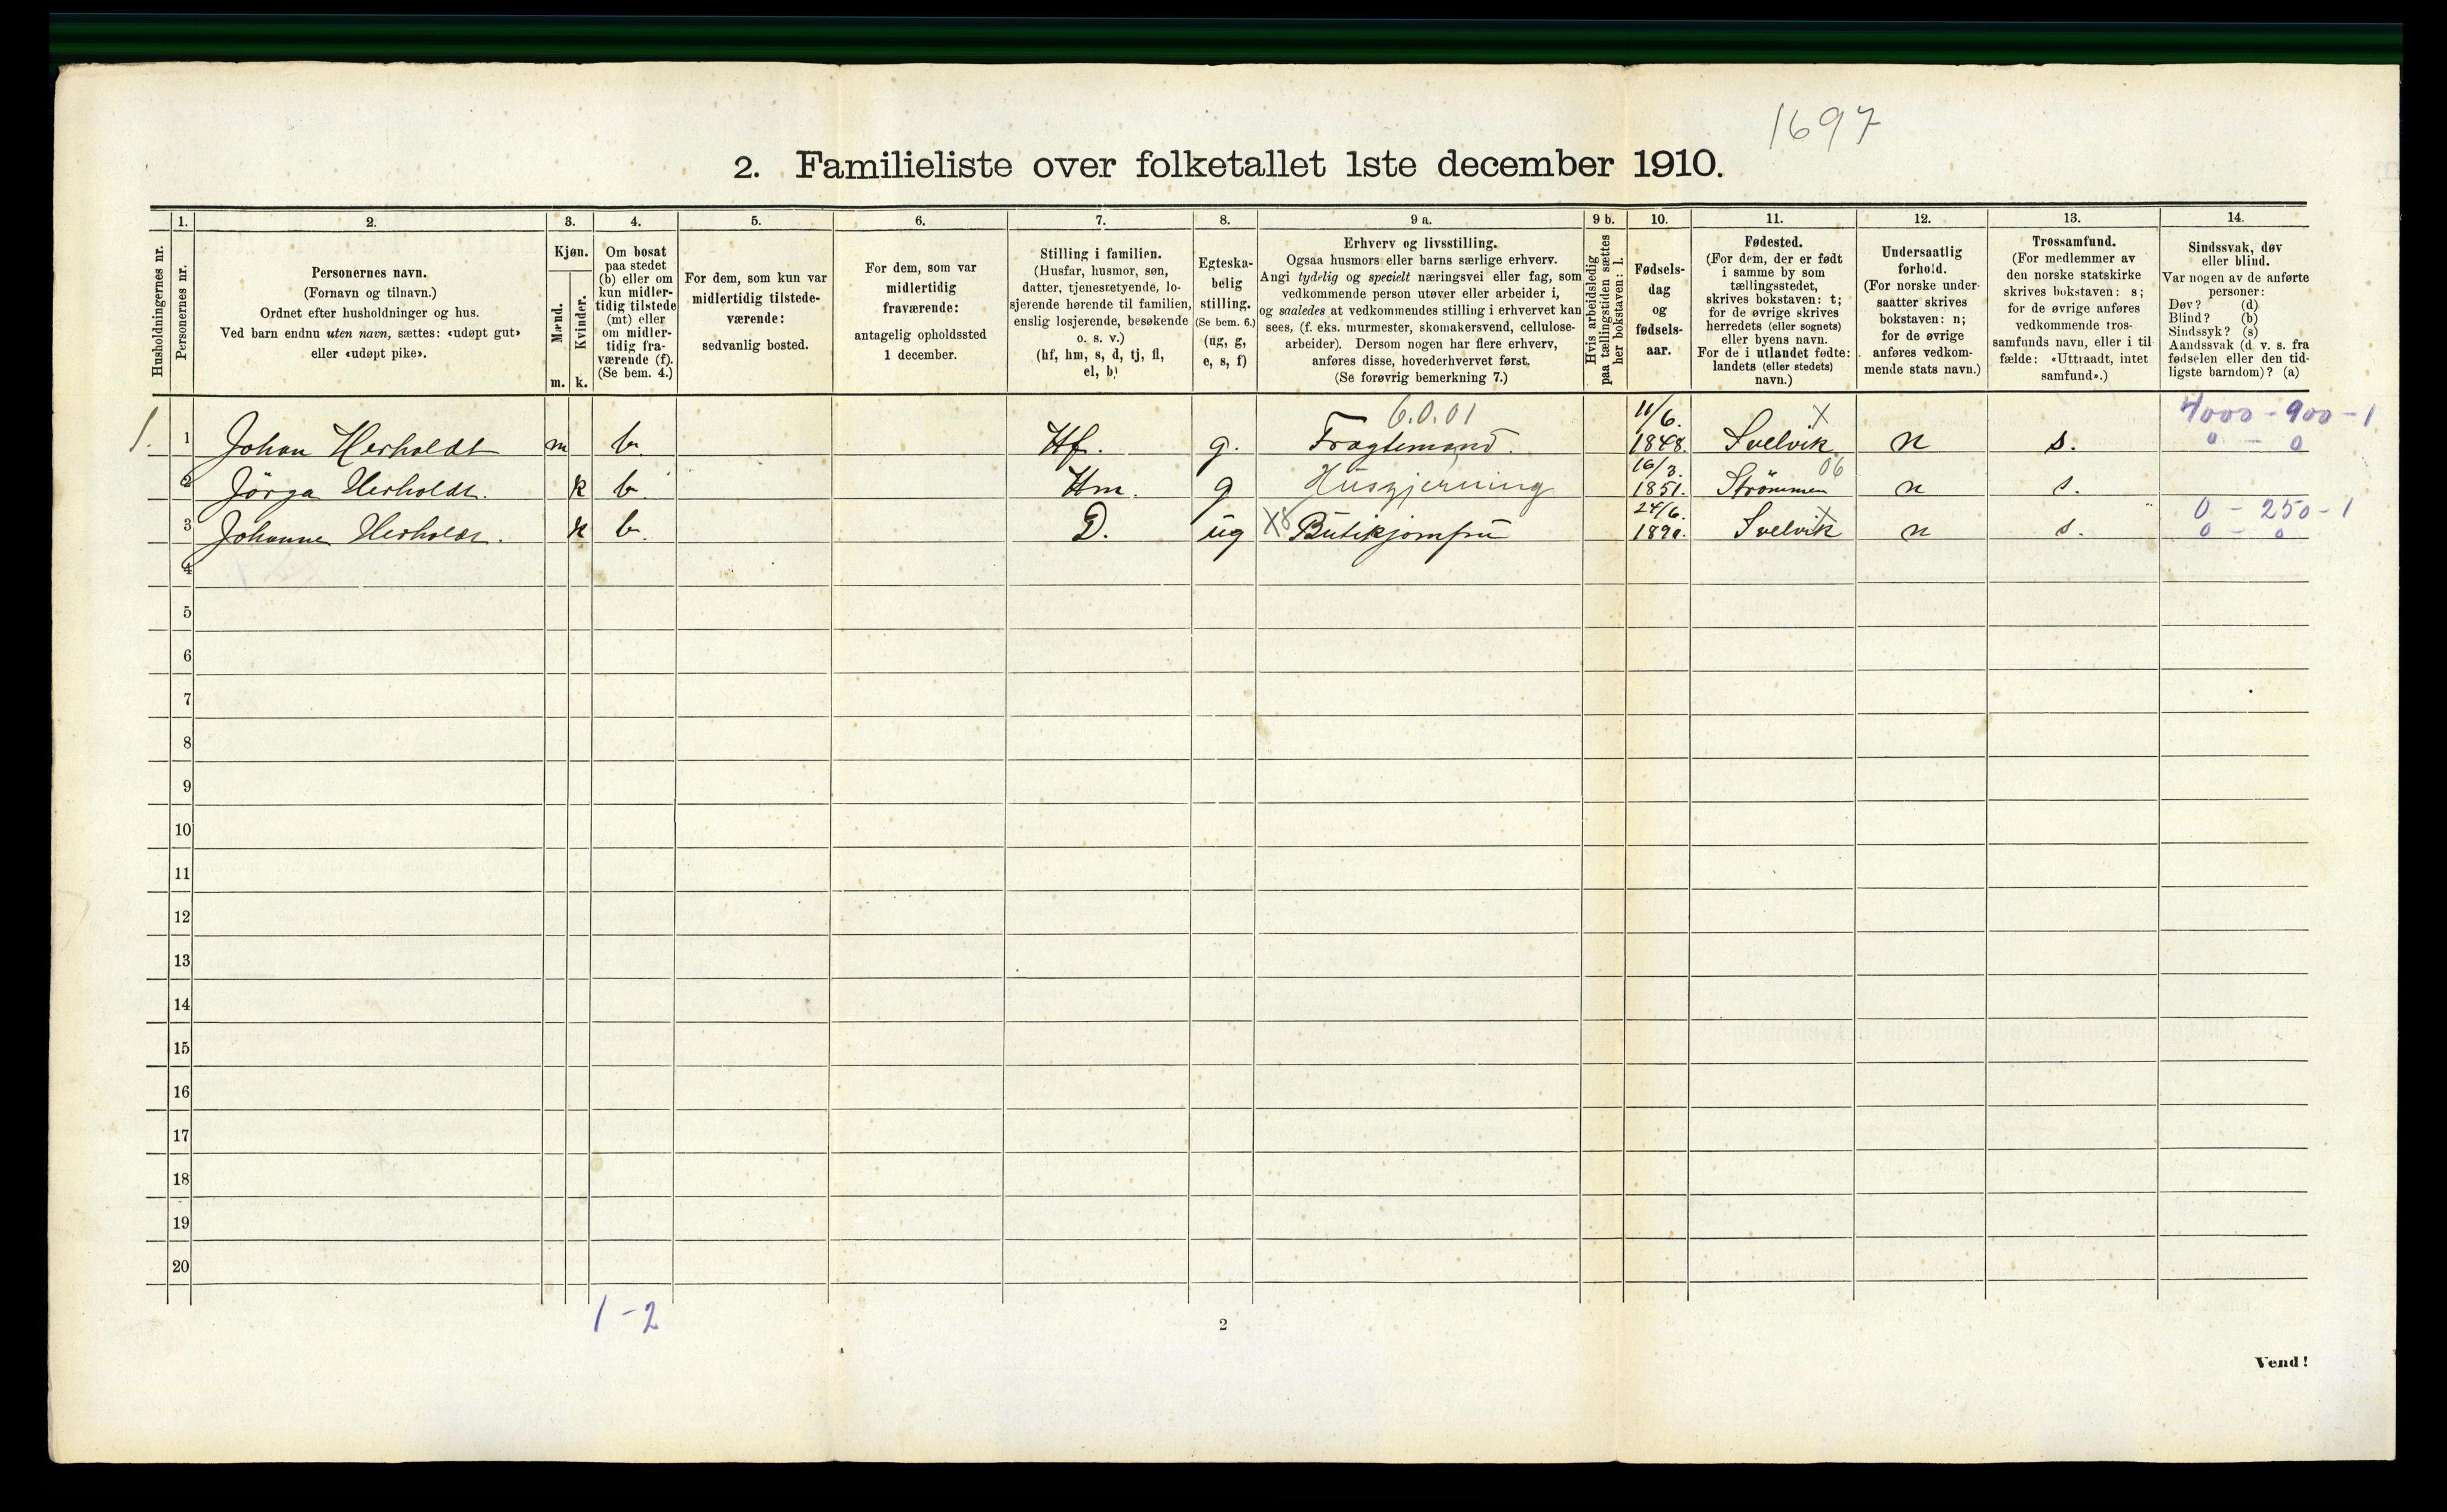 1697
2. Familieliste over folketallet 1ste december 1910.
Husholdningernes nr.
1.
Personernes nr.
2.
Personernes navn.
(Fornavn og tilnavn.)
Ordnet efter husholdninger og hus.
Ved barn endnu uten navn, sættes: «udøpt gut»
eller «udøpt pike».
3.
Kjøn.
Mænd.
Kvinder.
m. k.
4.
Om bosat
paa stedet
(b) eller om
kun midler-
tidig tilstede
(mt) eller
om midler-
tidig fra-
værende (f).
(Se bem. 4.)
5.
For dem, som kun var
midlertidig tilstede-
værende:
sedvanlig bosted.
6.
For dem, som var
midlertidig
fraværende:
antagelig opholdssted
1 december.
7.
Stilling i familien.
(Husfar, husmor, søn,
datter, tjenestetyende, lo-
sjerende hørende til familien,
enslig losjerende, besøkende
o. s. v.)
(hf, hm, s, d, tj, fl,
el, b)
8.
Egteska-
belig
stilling.
(Se bem. 6.)
(ug, g,
e, s, f)
9 a.
Erhverv og livsstilling.
Ogsaa husmors eller barns særlige erhverv.
Angi tydelig og specielt næringsvei eller fag, som
vedkommende person utøver eller arbeider i,
og saaledes at vedkommendes stilling i erhvervet kan
sees, (f. eks. murmester, skomakersvend, cellulose-
arbeider). Dersom nogen har flere erhverv,
anføres disse, hovederhvervet først.
(Se forøvrig bemerkning 7.)
9 b.
Hvis arbeidsledig
paa tællingstiden sættes
her bokstaven: l.
10.
Fødsels-
dag
og
fødsels-
aar.
11.
Fødested.
(For dem, der er født
i samme by som
tællingsstedet,
skrives bokstaven: t;
for de øvrige skrives
herredets (eller sognets)
eller byens navn.
For de i utlandet fødte:
landets (eller stedets)
navn.)
12.
Undersaatlig
forhold.
(For norske under-
saatter skrives
bokstaven: n;
for de øvrige
anføres vedkom-
mende stats navn.)
13.
Trossamfund.
(For medlemmer av
den norske statskirke
skrives bokstaven: s;
for de øvrige anføres
vedkommende tros-
samfunds navn, eller i til-
fælde: «Uttraadt, intet
samfund».)
14.
Sindssvak, døv
eller blind.
Var nogen av de anførte
personer:
Døv? (d)
Blind? (b)
Sindssyk? (s)
Aandssvak (d. v. s. fra
fødselen eller den tid-
ligste barndom)? (a)
6.0.01 11/6. X 4000 - 900 - 1
1. 1 Johan Herholdt m b. Hf. g. Fragtemand. 1848. Svelvik n s. 0 - 0
16/3. 06
2 Jörga Herholdt. k b. Hm. g Husgjerning 1851. Strömmen n s.
24/6. X 0 - 250 - 1
3 Johanne Herholdt. k b. D. ug X8 Butikjomfru 1890. Svelvik n s. 0 - 0
4
5
6
7
8
9
10
11
12
13
14
15
16
17
18
19
20
1 - 2
2
Vend!